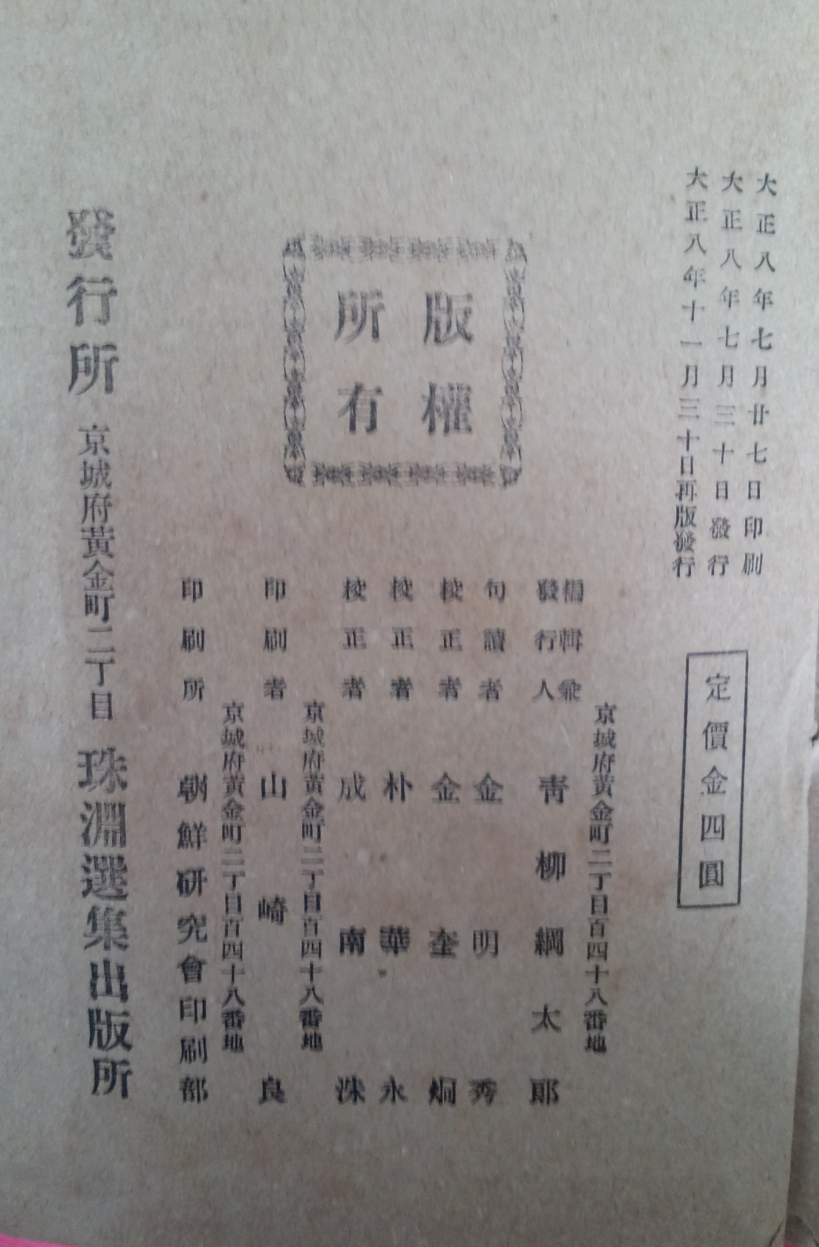 大正八年七月廿七日印刷
大正八年七月三十日發行
大正八年十一月三十日再版發行
定價金四圓
版權
所有
京城府黃金町二丁目百四十八番地
編輯兼
發行人 青柳綱太郎
句讀者 金明秀
校正者 金奎烱
校正者 朴華永
校正者 成南洙
京城府黃金町二丁目百四十八番地
印刷者 山崎良
京城府黃金町二丁目百四十八番地
印刷所 朝鮮研究會印刷部
發行所 京城府黃金町二丁目 珠淵選集出版所